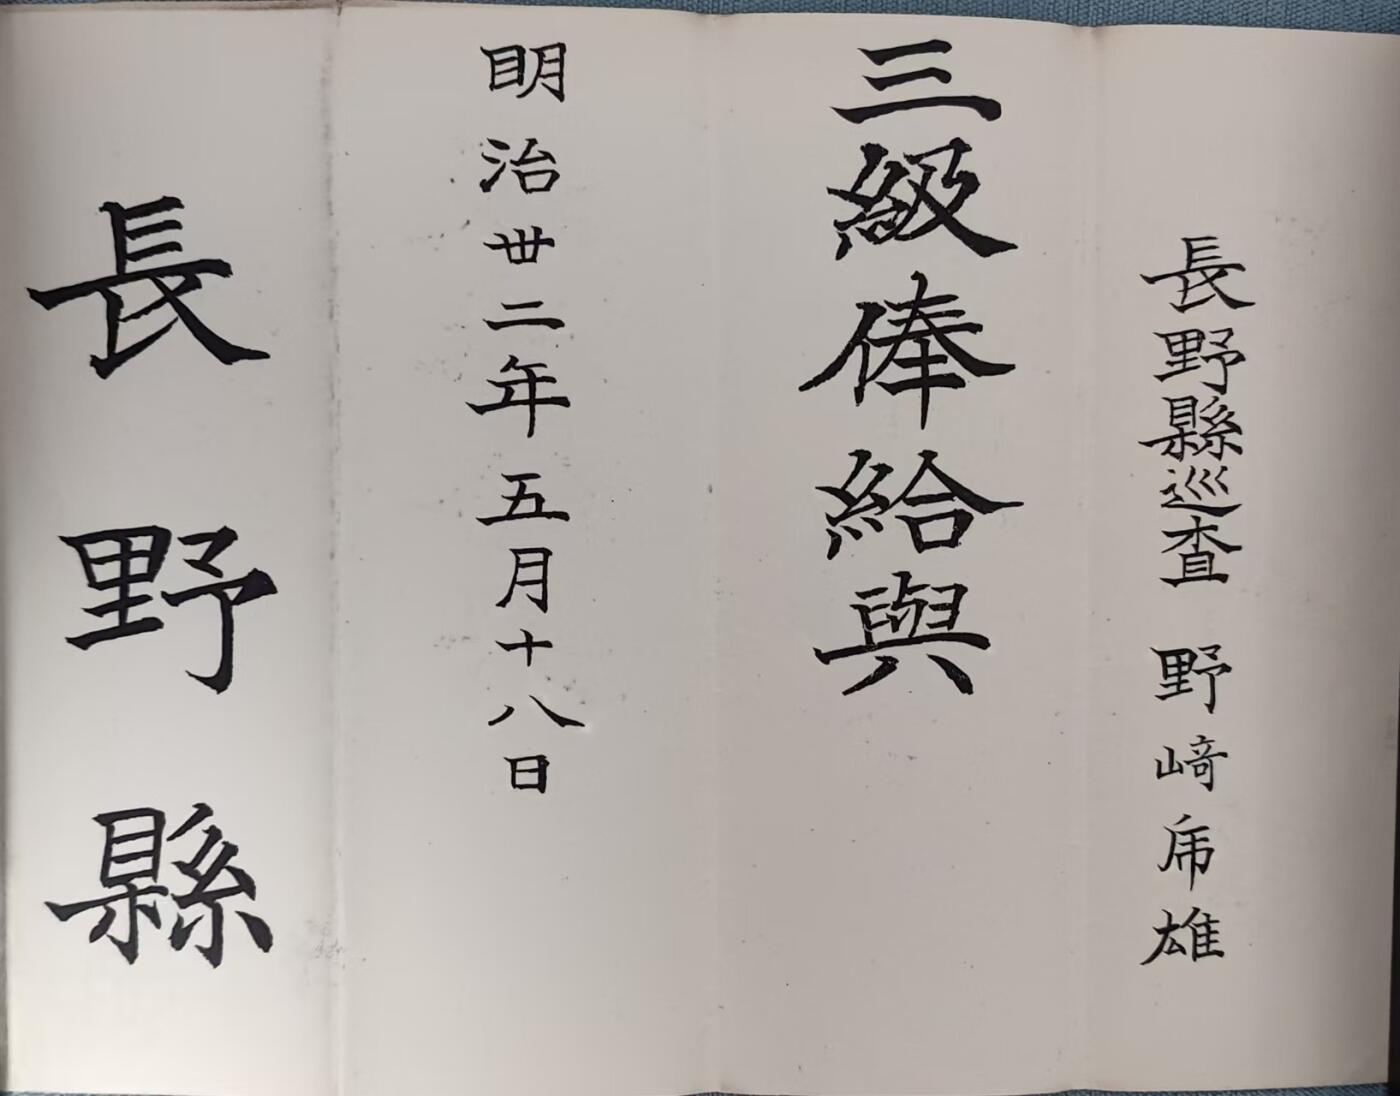 長野縣巡査 野﨑乕雄
三級俸給與
明治丗二年五月十八日
長野縣